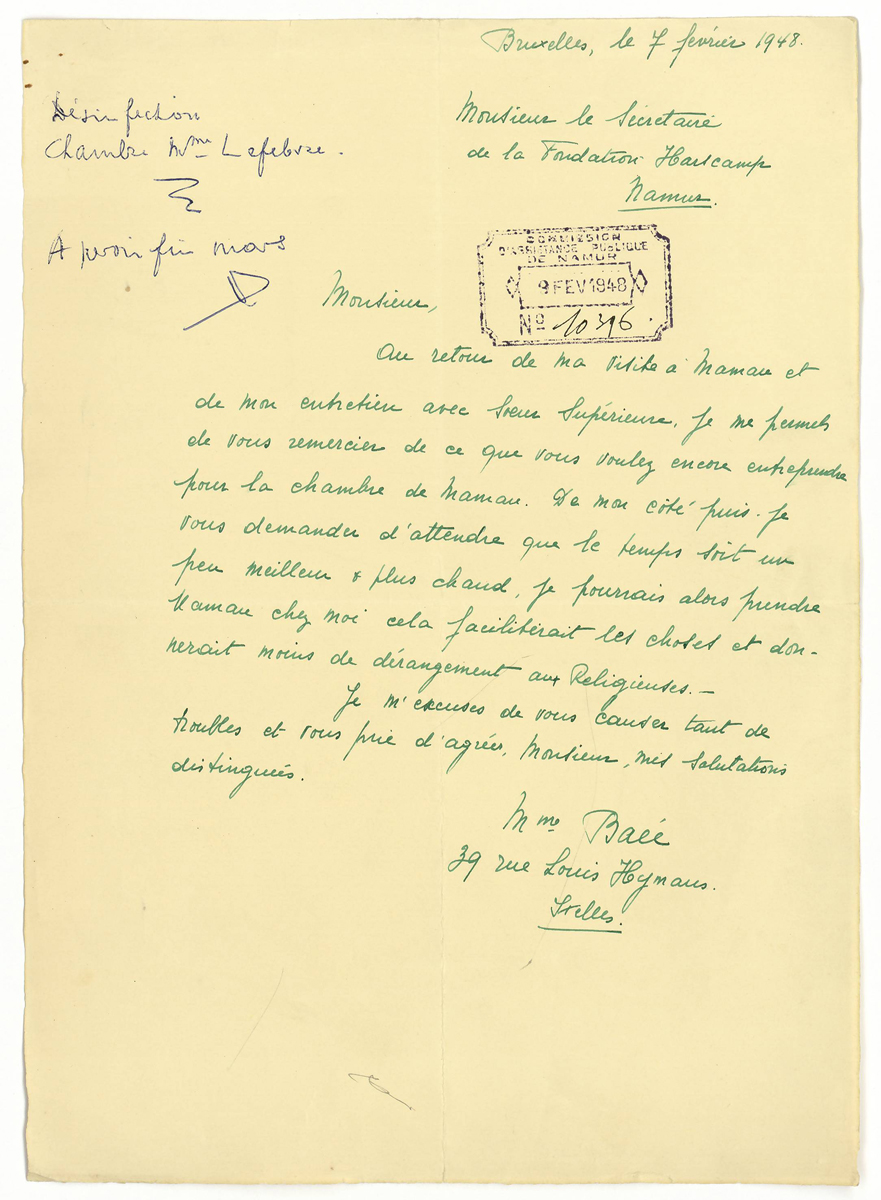 Bruxelles, le 7 février 1948.
Désinfection
Chambre Mme Lefebvre.
Monsieur le Secrétaire
de la Fondation Harscamp
Namur.
A revoir fin mars
COMMISSION
D'ASSISTANCE PUBLIQUE
DE NAMUR
9 FEV 1948
No 10396.
Monsieur,
Au retour de ma visite à Maman et
de mon entretien avec Soeur Supérieure, je me permets
de vous remercier de ce que vous voulez encore entreprendre
pour la chambre de Maman. De mon côté puis-je
vous demander d'attendre que le temps soit un
peu meilleur & plus chaud, je pourrais alors prendre
Maman chez moi cela faciliterait les choses et don-
nerait moins de dérangement aux Religieuses.-
Je m'excuses de vous causer tant de
troubles et vous prie d'agréer, Monsieur, mes salutations
distinguées.
Mme
39 rue Louis Hymans.
Ixelles.